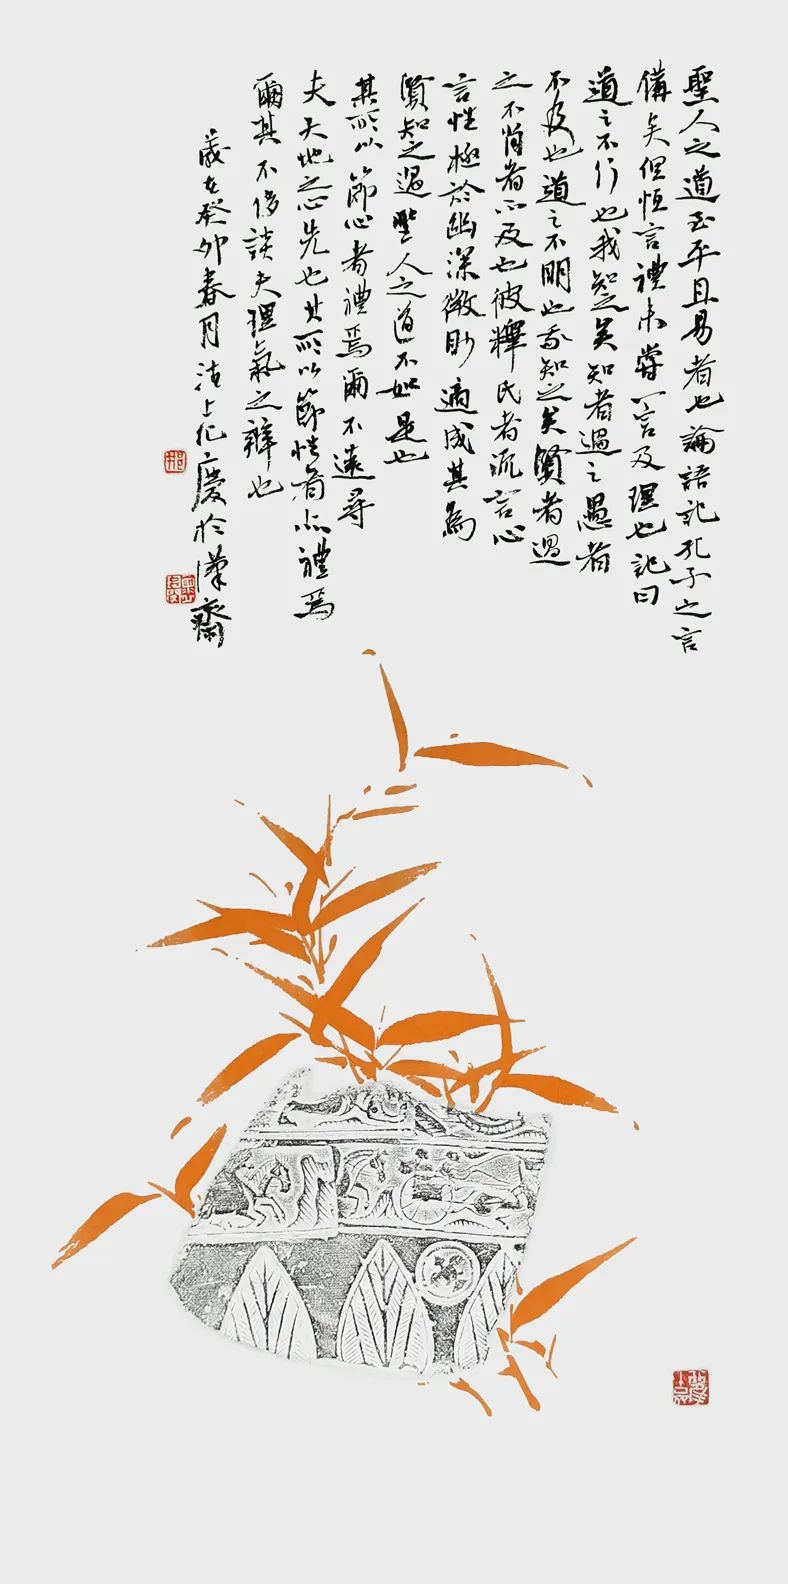 聖人之道至平且易者也論語記孔子之言
備矣但恒言禮未嘗一言及理也記曰
道之不行也我知之矣知者過之愚者
不及也道之不明也我知之矣賢者過
之不肖者不及也彼釋氏者流言心
言性極於幽深微眇適成其為
賢知之過聖人之道不如是也
其所以節心者禮焉爾不遠尋
夫天地之心先也其所以節性者亦禮焉
爾其不侈談夫理氣之辨也
歲在癸卯春月慶於漢齋